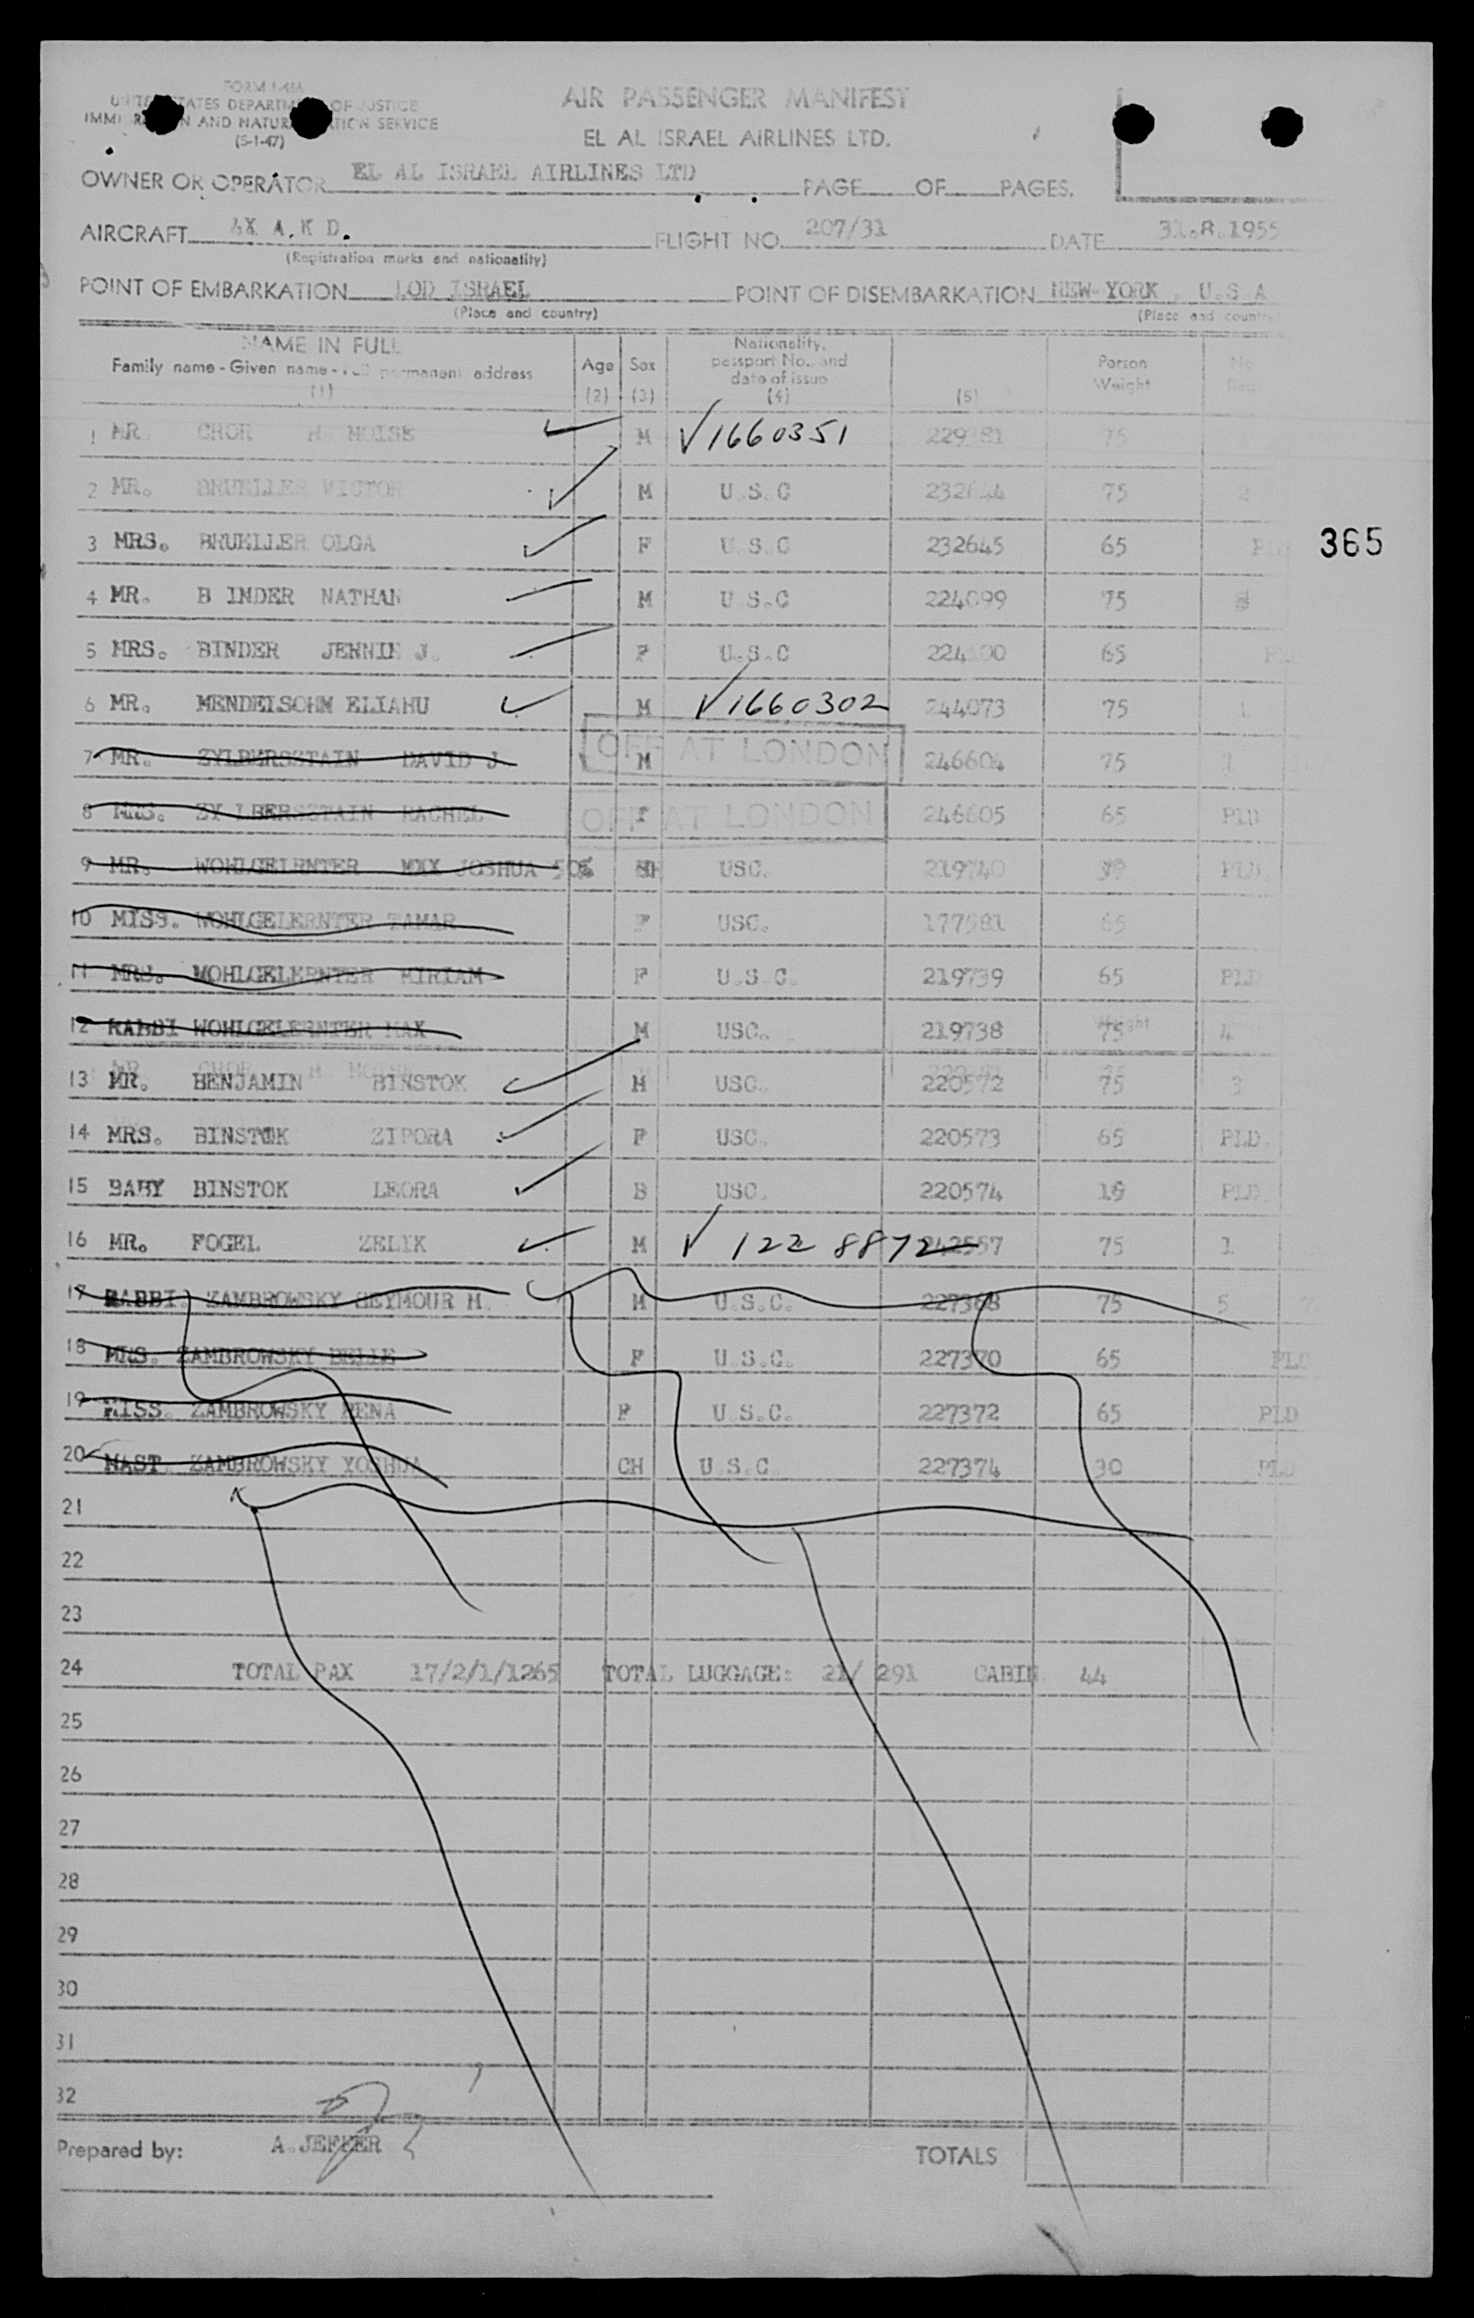 AIR PASSENGER MANIFEST
OF JUSTICE
AND
SERVICE
(5-1-47)
EL AL ISRAEL AIRLINES LTD.
OWNER OR OPERATOR EL AL ISRAEL AIRLINES LTD PAGE OF PAGES.
AIRCRAFT 4X A.K D. FLIGHT NO. 207/31 DATE 31.8.1955
(Registration marks and nationality)
POINT OF EMBARKATION LOD ISRAEL POINT OF DISEMBARKATION NEW-YORK . U.S A
(Place and country) (Place and
NAME IN FULL
Family name - Given name - permanent address
(1)
Age
(2)
Sex
(3)
Nationality,
passport No., and
date of issue
(4)
(5)
Person
Weight
1 MR. CHOR H. MOISE M √1660351 75
2 MR. BRUELLER VICTOR M U.S.C 75 2
3 MRS. BRUELLER OLGA F U.S.C 232645 65
365
4 MR. B INDER NATHAN M U.S.C 224099 75
5 MRS. BINDER J. F U.S.C 65
6 MR. MENDELSOHM ELIAHU M √1660302 244073 75 1
7 MR. ZYLBERSZTAIN DAVID J M OFF AT LONDON 246604 75
8 MRS. ZY LBERSZTAIN RACHEL OFF AT LONDON 246605 65 PLD
9 MR. WOHLGELERNTER JOSHUA USC. 219740 PLD.
10 MISS. WOHLGELERNTER TAMAR F USC. 177581 65
11 MRS. WOHLGELERNTER MIRIAM F U.S C. 219739 65 PLD
12 RABBI WOHLGELERNTER MAX M USC. 219738 75 4
13 MR. BENJAMIN BINSTOK M USC. 220572 75 3
14 MRS. ZIPORA F USC. 220573 65 PLD.
15 BABY BINSTOK LEORA B USC. 220574 PLD.
16 MR. FOGEL ZELIK M √ 1228872 75 1
17 RABBI ZAMBROWSKY SEYMOUR M. M U.S.C. 227368 75 5
18 MRS. ZAMBROWSKY BELLE F U.S.C. 227370 65 PLD
19 MISS. ZAMBROWSKY PENA F U.S.C. 227372 65 PLD
20 MAST. ZAMBROWSKY YOSHUA CH U.S.C 227374 30 PLD
21
22
23
24 TOTAL PAX 17/2/1/1265 TOTAL LUGGAGE: 21/ 291 CABIN 44
25
26
27
28
29
30
31
32
Prepared by: A.JEFFER TOTALS